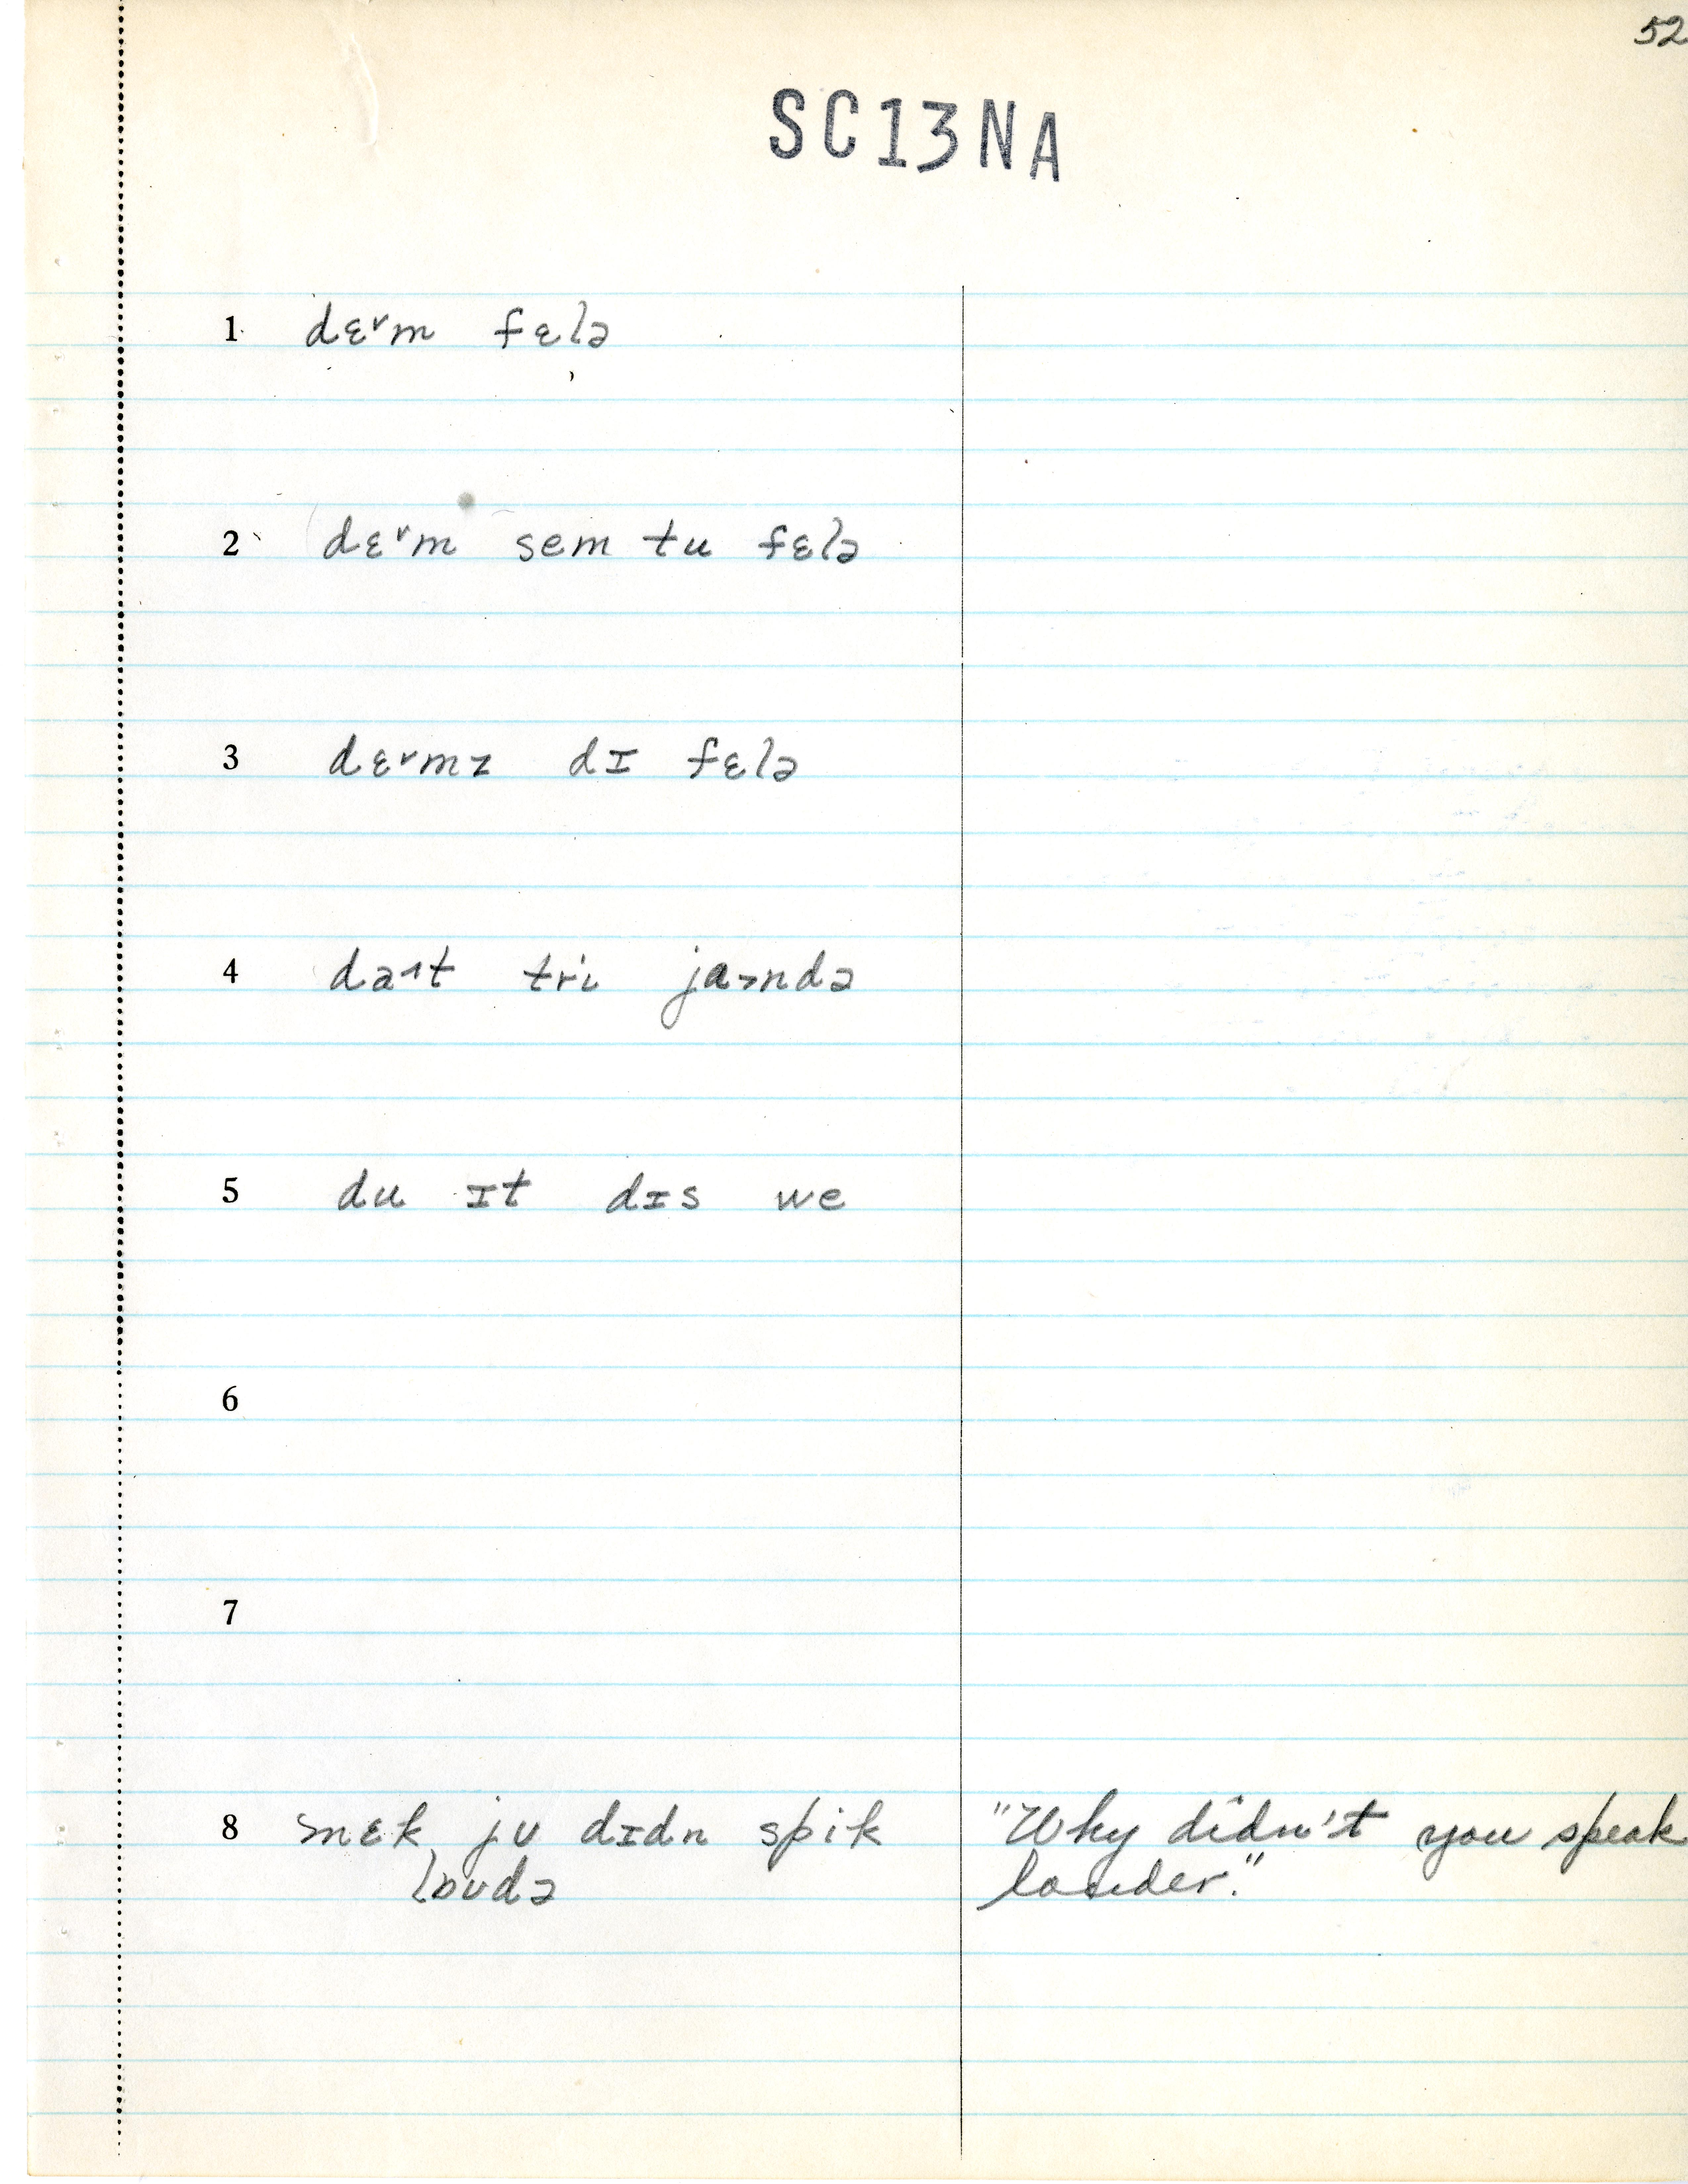 52
SC13NA
1 dɛ˅m fɛlə
2 dɛ˅m sem tu fɛlə
3 dɛ˅mz dɪ fɛlə
4 da˄t tri ja˃ndə
5 du ɪt dɪs we
6
7
8 mɛk ju dɪdn spik "Why didn't you speak
lɒudə louder."